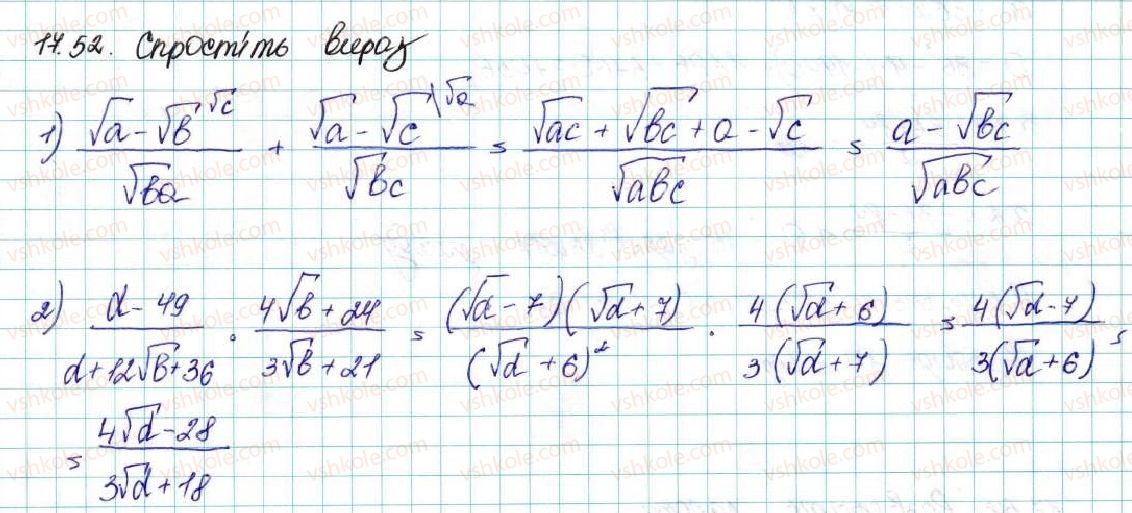 17.52. Спростіть вираз
1) (√a - √b)/√ba |√c + (√a - √c)/√bc |√a = (√ac + √bc + a - √c)/√abc = (a - √bc)/√abc
2) (d - 49)/(d + 12√b + 36) · (4√b + 24)/(3√b + 21) = ((√d - 7)(√d + 7))/(√d + 6)² · (4(√d + 6))/(3(√d + 7)) = (4(√d - 7))/(3(√d + 6)) =
= (4√d - 28)/(3√d + 18)